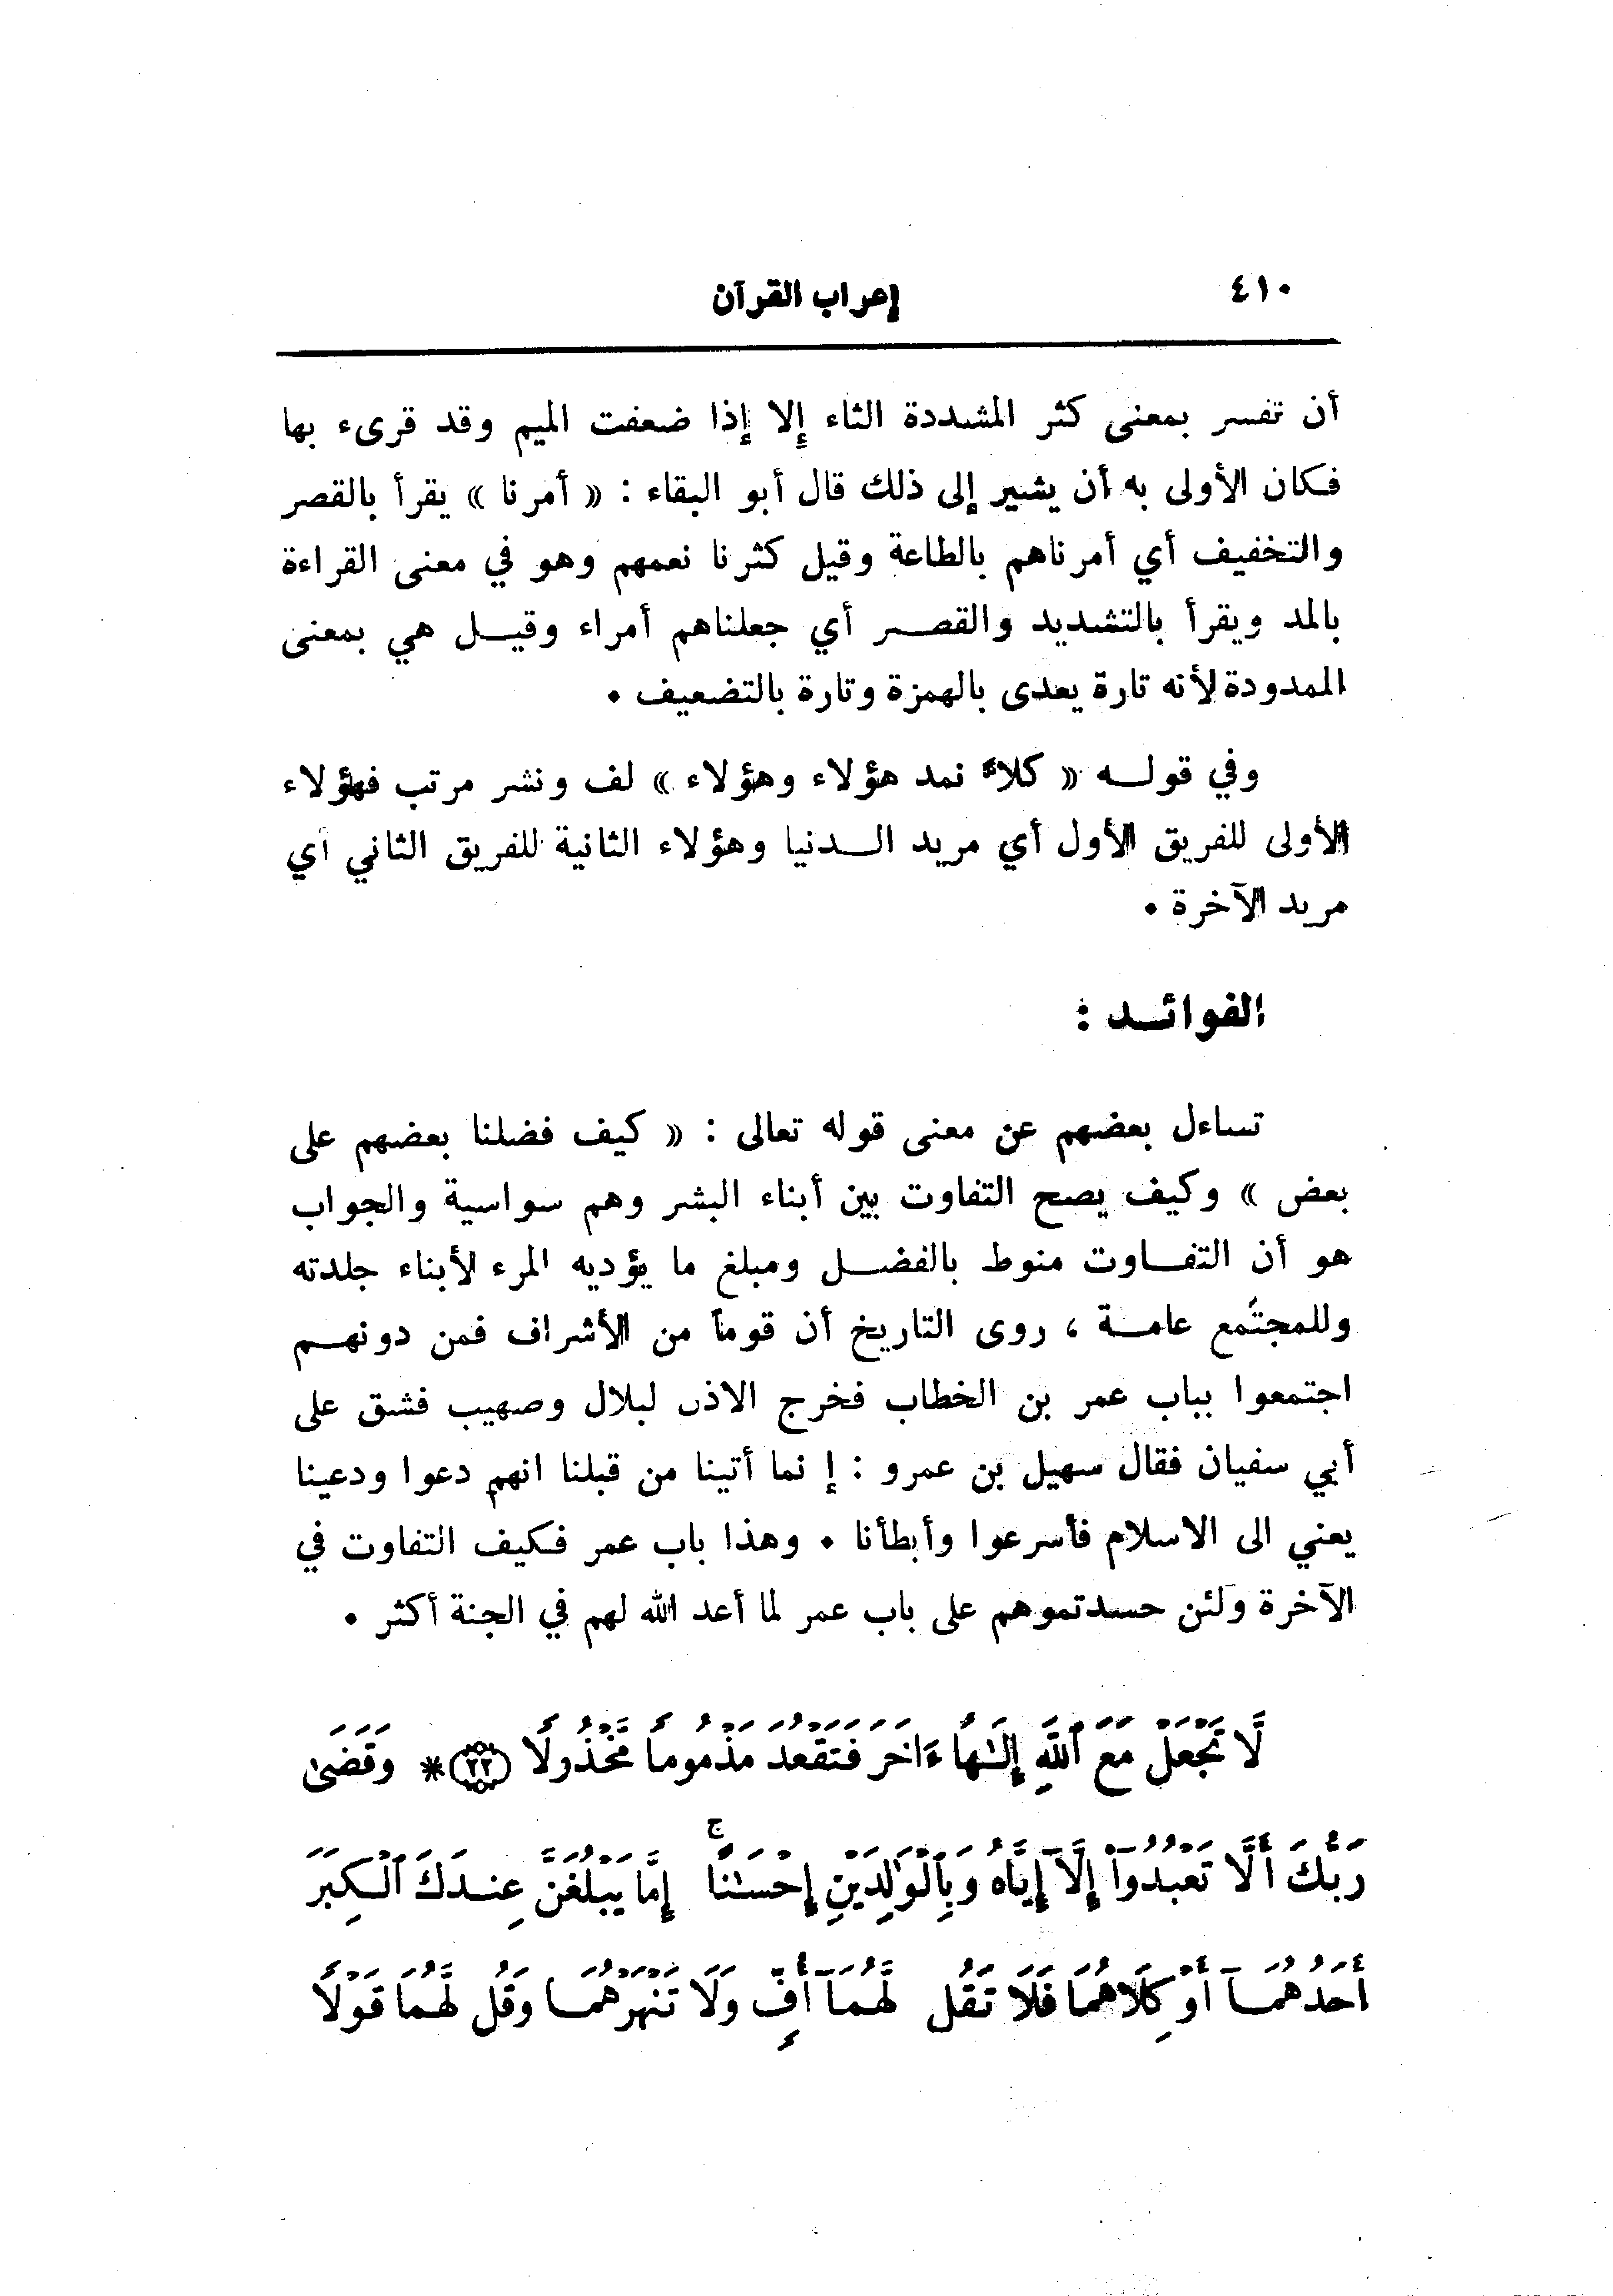 ٤١٠
إعراب القرآن
أن تفسر بمعنى كثر المشددة الثاء إلا إذا ضعفت الميم وقد قرىء بها
فكان الأولى به أن يشير إلى ذلك قال أبو البقاء : « أمرنا » يقرأ بالقصر
والتخفيف أي أمرناهم بالطاعة وقيل كثرنا نعمهم وهو في معنى القراءة
بالمد ويقرأ بالتشديد والقصر أي جعلناهم أمراء وقيل هي بمعنى
الممدودة لأنه تارة يعدى بالهمزة وتارة بالتضعيف .
وفي قوله « كلاً نمد هؤلاء وهؤلاء » لف ونشر مرتب فهؤلاء
الأولى للفريق الأول أي مريد الدنيا وهؤلاء الثانية للفريق الثاني أي
مريد الآخرة .
الفوائد :
تساءل بعضهم عن معنى قوله تعالى : « كيف فضلنا بعضهم على
بعض » وكيف يصح التفاوت بين أبناء البشر وهم سواسية والجواب
هو أن التفاوت منوط بالفضل ومبلغ ما يؤديه المرء لأبناء جلدته
وللمجتمع عامة ، روى التاريخ أن قوماً من الأشراف فمن دونهم
اجتمعوا بباب عمر بن الخطاب فخرج الاذن لبلال وصهيب فشق على
أبي سفيان فقال سهيل بن عمرو : إنما أتينا من قبلنا انهم دعوا ودعينا
يعني الى الاسلام فأسرعوا وأبطأنا . وهذا باب عمر فكيف التفاوت في
الآخرة ولئن حسدتموهم على باب عمر لما أعد الله لهم في الجنة أكثر .
لَّا تَجْعَلْ مَعَ ٱللَّهِ إِلَٰهًا ءَاخَرَ فَتَقْعُدَ مَذْمُومًا مَّخْذُولًا ﴿٢٢﴾ * وَقَضَىٰ
رَبُّكَ أَلَّا تَعْبُدُوٓا۟ إِلَّآ إِيَّاهُ وَبِٱلْوَٰلِدَيْنِ إِحْسَٰنًا ۚ إِمَّا يَبْلُغَنَّ عِندَكَ ٱلْكِبَرَ
أَحَدُهُمَآ أَوْ كِلَاهُمَا فَلَا تَقُل لَّهُمَآ أُفٍّ وَلَا تَنْهَرْهُمَا وَقُل لَّهُمَا قَوْلًا